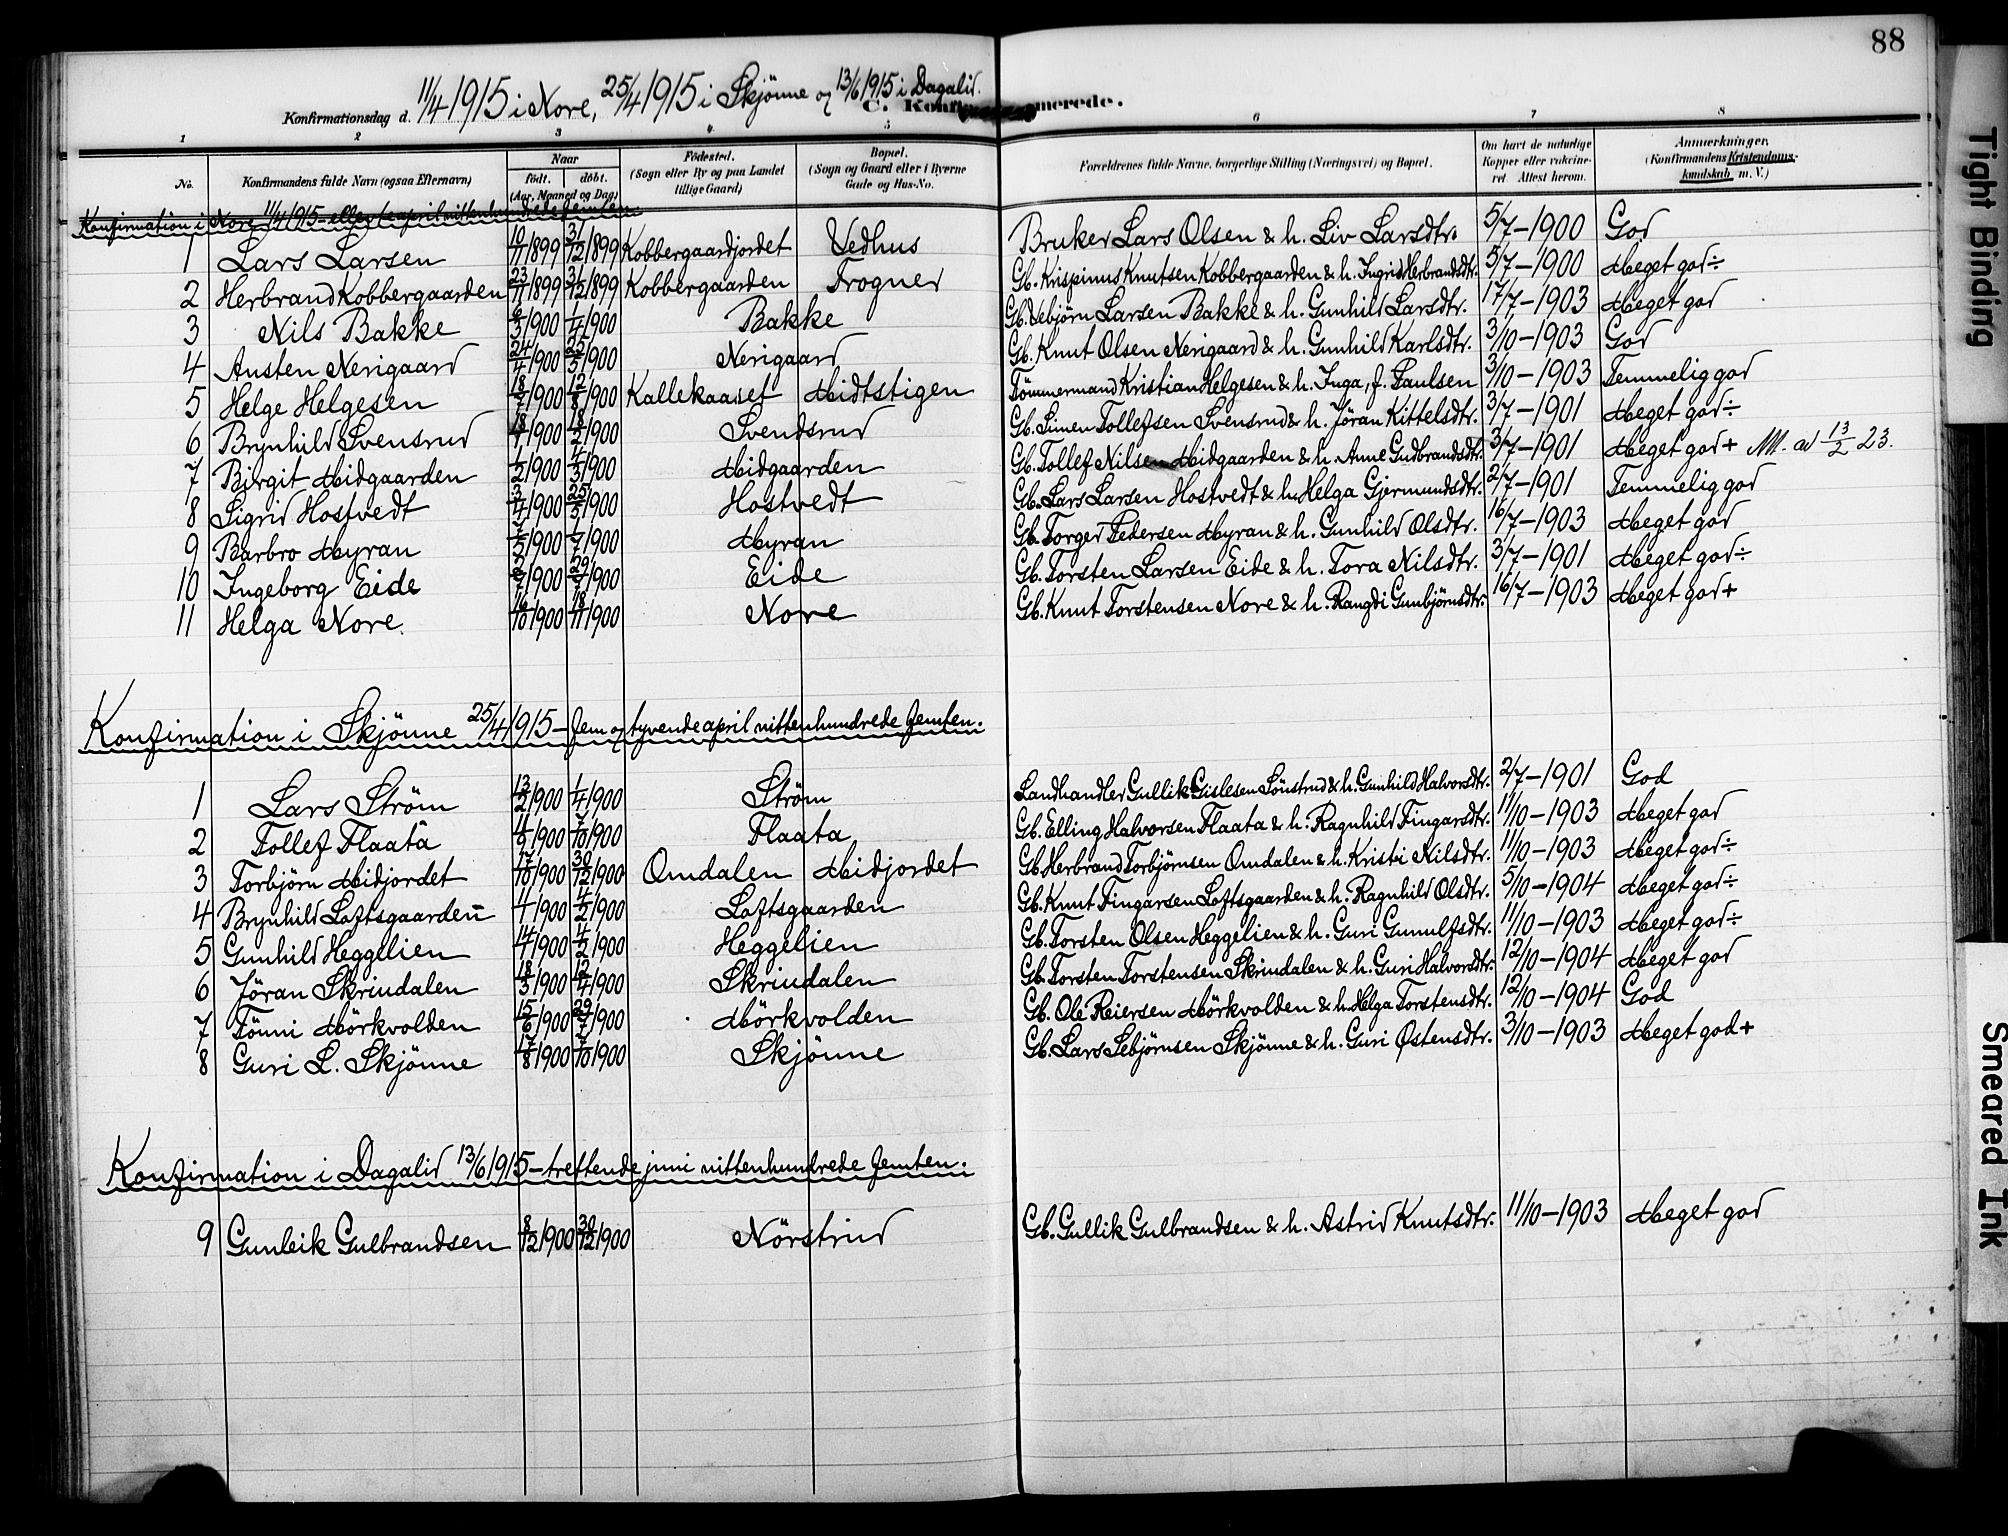 88
Konfirmationsdag d. 11/4 1915 i Nore, 25/4 1915 i Skjönne og 13/6 1915 i Dagalid.
1 2 3 4 5 6 7 8
No. Konfirmandens fulde Navn (ogsaa Efternavn) Naar født. døbt. (Aar, Maaned og Dag) Fødested. (Sogn eller By og paa Landet tillige Gaard) Bopæl. (Sogn og Gaard eller i Byerne Gade og Hus-No. Forældrenes fulde Navne, borgerlige Stilling (Næringsvei) og Bopæl. Om havt de naturlige Kopper eller vakcineret. Attest herom. Anmærkninger. (Konfirmandens Kristendomskundskab m. V.)
Konfirmation i Nore 11/4 1915 - ellevte april nittenhundrede femten.
1 Lars Larsen 10/11 1899 31/12 1899 Kobbergaardjordet Vedhus Bruker Lars Olsen & h. Liv Larsdtr. 5/7-1900 God
2 Herbrand Kobbergaarden 23/11 1899 31/12 1899 Kobbergaarden Frogner Gb. Krispinus Knutsen Kobbergaarden & h. Ingrid Herbrandsdtr. 5/7-1900 Meget god÷
3 Nils Bakke /3 1900 1/4 1900 Bakke Gb. Sebjörn Larsen Bakke & h. Gunhild Larsdtr. 17/7-1903 Meget god
4 Austen Nerigaard 24/4 1900 /5 1900 Nerigaard Gb. Knut Olsen Nerigaard & h. Gunhild Karlsdtr. 3/10-1903 God
5 Helge Helgesen 18/7 1900 12/8 1900 Kallekaaset Midtstigen Tömmermand Kristian Helgesen & h. Inga, f. Paulsen 3/10-1903 Temmelig god
6 Brynhild Svensrud 18/1 1900 18/2 1900 Svendsrud Gb. Simen Tollefsen Svensrud & h. Jöran Kittelsdtr. 3/7-1901 Meget god÷
7 Birgit Midgaarden 1/2 1900 4/3 1900 Midgaarden Gb. Tollef Nilsen Midgaarden & h. Anne Gudbrandsdtr. 3/7-1901 Meget god+ M. ad 13/2 23.
8 Sigrid Hostvedt 3/4 1900 25/5 1900 Hostvedt Gb. Lars Larsen Hostvedt & h. Helga Gjermundsdtr. 2/7-1901 Temmelig god
9 Barbro Myran /5 1900 1/7 1900 Myran Gb. Torger Pedersen Myran & h. Gunhild Olsdtr. 16/7-1903 Meget god
10 Ingeborg Eide 1900 29/7 1900 Eide Gb. Torsten Larsen Eide & h. Tora Nilsdtr. 3/7-1901 Meget god÷
11 Helga Nore. 16/10 1900 18/11 1900 Nore Gb. Knut Torstensen Nore & h. Rangdi Gunbjörnsdtr. 16/7-1903 Meget god+
Konfirmation i Skjönne 25/4 1915 - fem og tyvende april nittenhundrede femten.
1 Lars Ström 13/2 1900 1/4 1900 Ström Landhandler Gullik Gislesen Sönstrud & h. Gunhild Halvorsdtr. 2/7-1901 God
2 Tollef Flaata 11/9 1900 7/10 1900 Flaata Gb. Elling Halvorsen Flaata & h. Ragnhild Fingarsdtr. 11/10-1903 Meget god
3 Torbjörn Midjordet 17/10 1900 30/12 1900 Omdalen Midjordet Gb. Herbrand Torbjörnsen Omdalen & h. Kristi Nilsdtr. 11/10-1903 Meget god÷
4 Brynhild Loftsgaarden 1/1 1900 4/2 1900 Loftsgaarden Gb. Knut Fingarsen Loftsgaarden & h. Ragnhild Olsdtr. 5/10-1904 Meget god÷
5 Gunhild Heggelien 1900 4/2 1900 Heggelien Gb. Torsten Olsen Heggelien & h. Guri Gunulfsdtr. 11/10-1903 Meget god÷
6 Jöran Skrindalen 18/3 1900 /4 1900 Skrindalen Gb. Torsten Torstensen Skrindalen & h. Guri Halvorsdtr. 12/10-1904 Meget god
7 Tönni Mörkvolden 15/6 1900 29/7 1900 Mörkvolden Gb. Ole Reiersen Mörkvolden & h. Helga Torstensdtr. 12/10-1904 God
8 Guri L. Skjönne 17/8 1900 7/10 1900 Skjönne Gb. Lars Sebjörnsen Skjönne & h. Guri Østensdtr. 3/10-1903 Meget god+
Konfirmation i Dagalid 13/6 1915 - trettende juni nittenhundrede femten.
9 Gunleik Gulbrandsen 8/12 1900 30/12 1900 Nörstrud Gb. Gullik Gulbrandsen & h. Astrid Knutsdtr. 11/10-1903 Meget god
Tight Binding
Smeared Ink